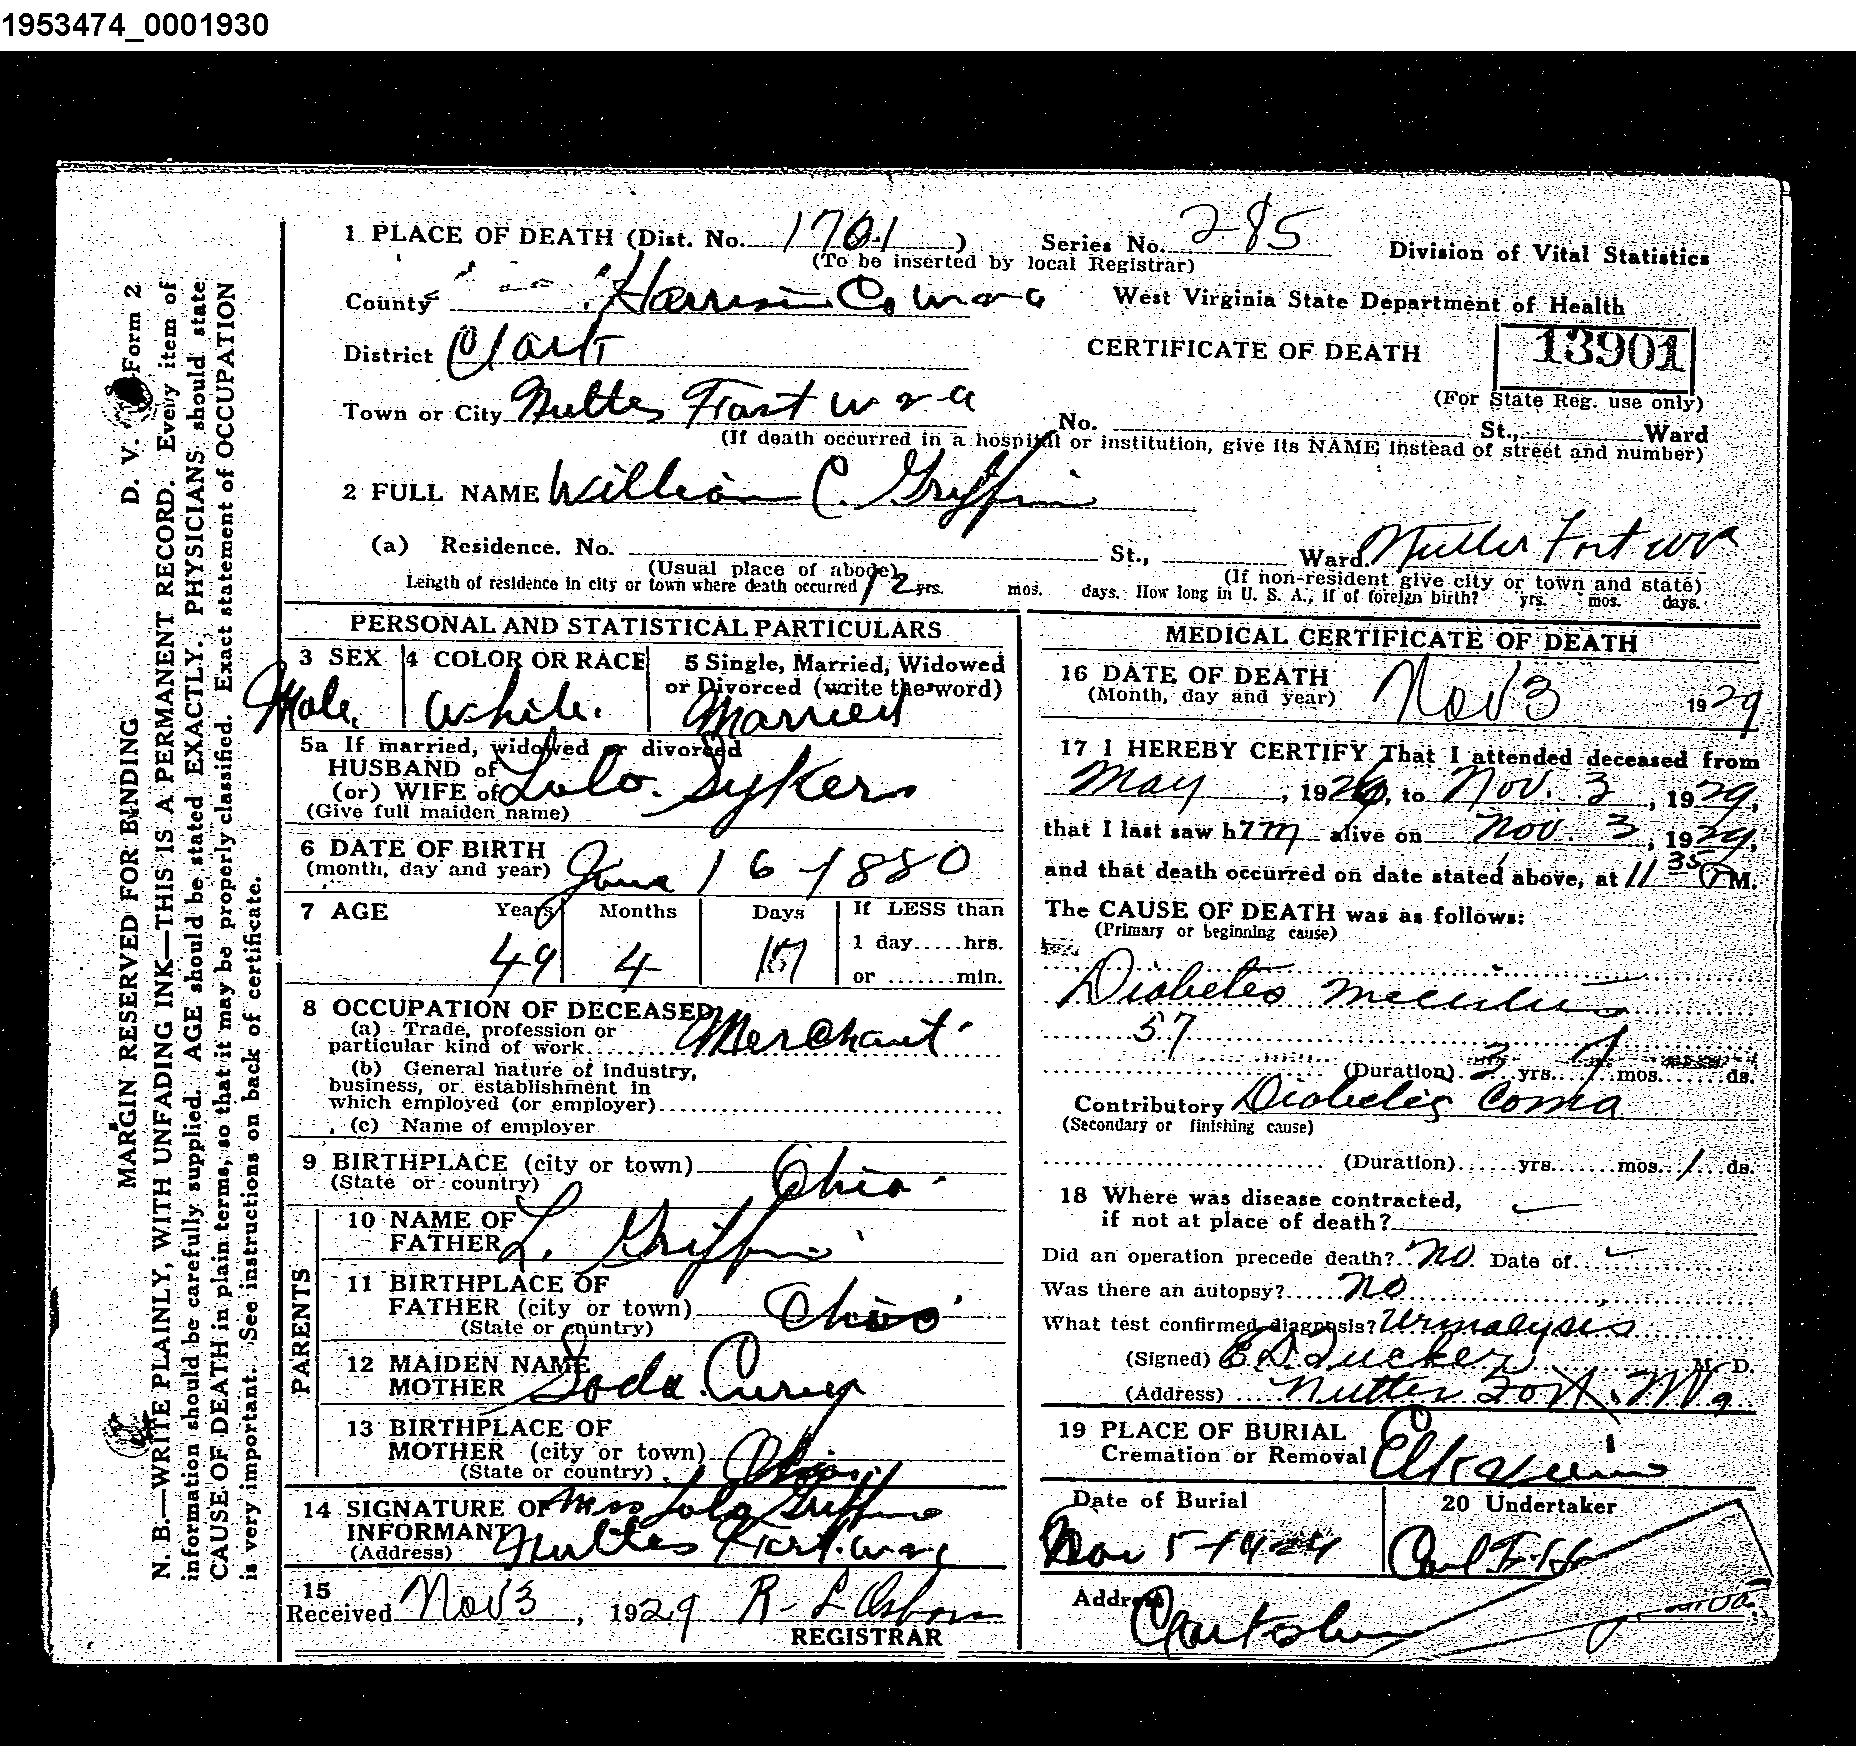 1953474_0001930
1 PLACE OF DEATH (Dist. No. 1701 ) Series No. 285 Division of Vital Statistics
(To be inserted by local Registrar)
County Harrison Co W Va West Virginia State Department of Health
District Clark CERTIFICATE OF DEATH 13901
(For State Reg. use only)
Town or City Nutter Fort W Va No. St., Ward
(If death occurred in a hospital or institution, give its NAME instead of street and number)
2 FULL NAME William C. Griffin
(a) Residence. No. St., Ward. Nutter Fort W Va
(Usual place of abode) (If non-resident give city or town and state)
Length of residence in city or town where death occurred 12 yrs. mos. days. How long in U. S. A., if of foreign birth? yrs. mos. days.
PERSONAL AND STATISTICAL PARTICULARS
3 SEX 4 COLOR OR RACE 5 Single, Married, Widowed
or Divorced (write the word)
Male. White. Married
5a If married, widowed or divorced
HUSBAND of
(or) WIFE of Lolo. Sykers
(Give full maiden name)
6 DATE OF BIRTH
(month, day and year) June 16 1880
7 AGE Years Months Days If LESS than
1 day.....hrs.
49 4 17
or .......min.
8 OCCUPATION OF DECEASED
(a) Trade, profession or
particular kind of work Merchant
(b) General nature of industry,
business, or establishment in
which employed (or employer)
(c) Name of employer
9 BIRTHPLACE (city or town) Ohio
(State or country)
PARENTS
10 NAME OF
FATHER L. Griffin
11 BIRTHPLACE OF
FATHER (city or town) Ohio
(State or country)
12 MAIDEN NAME
MOTHER Soda
13 BIRTHPLACE OF
MOTHER (city or town) Ohio
(State or country)
14 SIGNATURE OF Mrs Lola Griffin
INFORMANT
(Address) Nutter Fort. W Va
15
Received Nov 3, 1929 R- L Osborn
REGISTRAR
MEDICAL CERTIFICATE OF DEATH
16 DATE OF DEATH
(Month, day and year) Nov 3 1929
17 I HEREBY CERTIFY That I attended deceased from
May, 1926, to Nov. 3, 1929,
that I last saw him alive on Nov. 3, 1929,
and that death occurred on date stated above, at 11 35 P M.
The CAUSE OF DEATH was as follows:
(Primary or beginning cause)
Diabetes
57
(Duration) 3 yrs. 7 mos. ds.
Contributory Diabetic Coma
(Secondary or finishing cause)
(Duration) yrs. mos. 1 ds.
18 Where was disease contracted,
if not at place of death?
Did an operation precede death? No. Date of
Was there an autopsy? No
What test confirmed diagnosis? Urinalysis
(Signed) E D Tucker M. D.
(Address) Nutter Fort. W Va
19 PLACE OF BURIAL
Cremation or Removal Elkview
Date of Burial 20 Undertaker
Nov 5-1929
Address Clarksburg W Va.
D. V. Form 2
MARGIN RESERVED FOR BINDING
N. B.—WRITE PLAINLY, WITH UNFADING INK—THIS IS A PERMANENT RECORD. Every item of
information should be carefully supplied. AGE should be stated EXACTLY. PHYSICIANS should state
CAUSE OF DEATH in plain terms, so that it may be properly classified. Exact statement of OCCUPATION
is very important. See instructions on back of certificate.